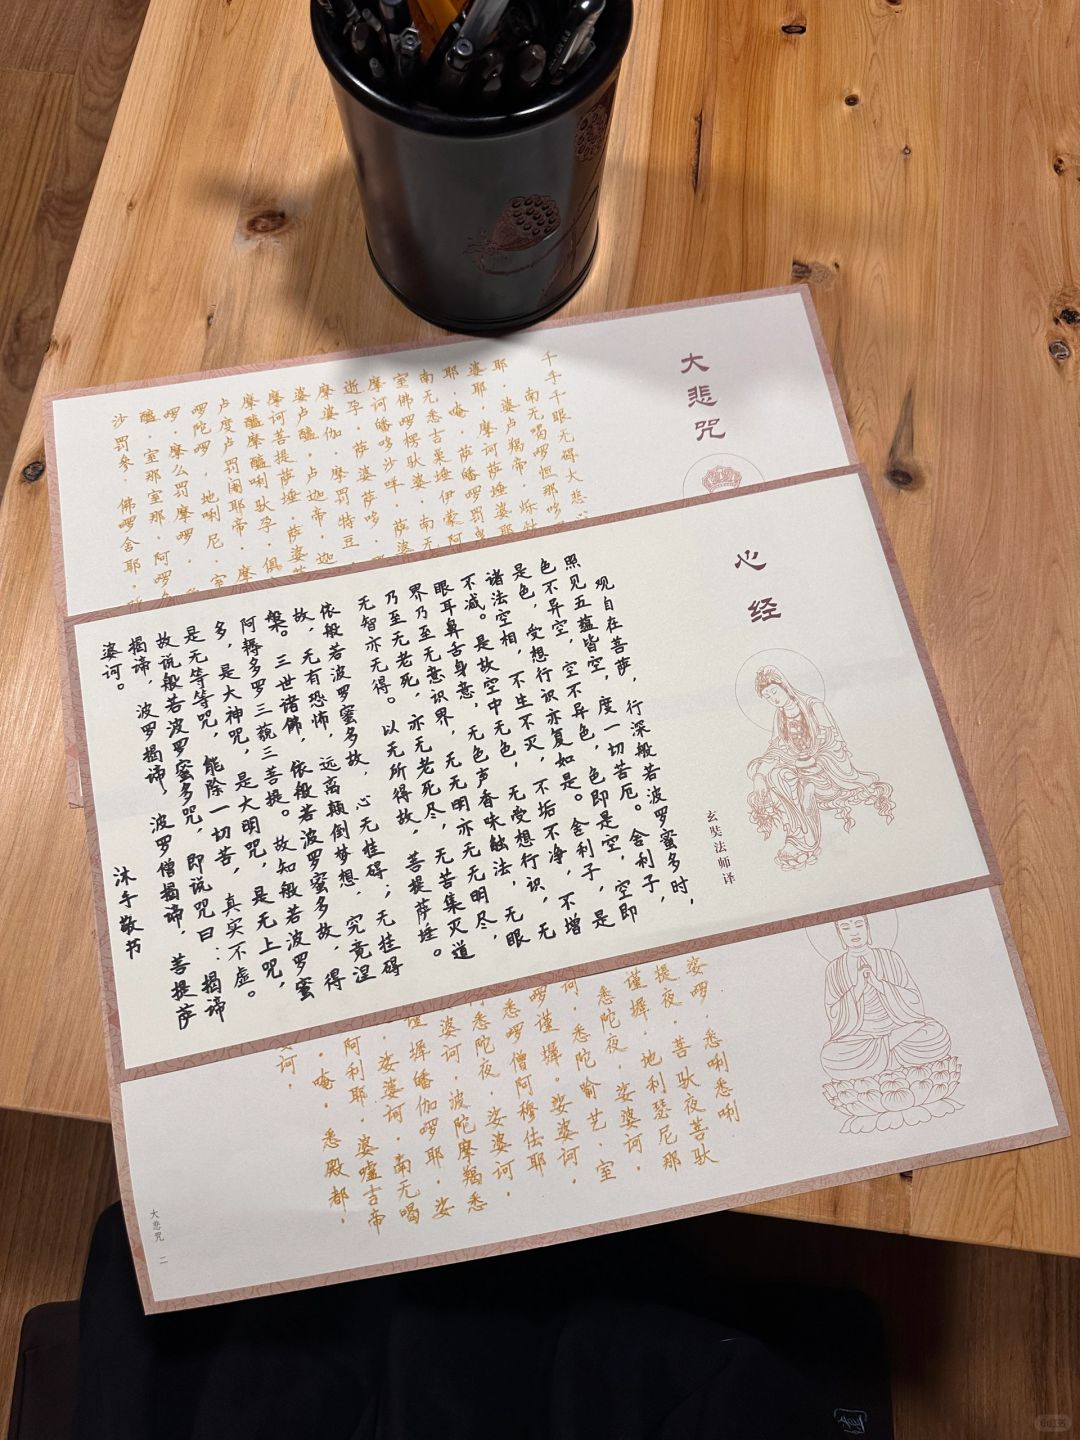 大悲咒
千手千眼无碍大悲
南无喝啰怛那哆
耶，婆卢羯帝，烁
婆耶，摩诃萨埵婆耶
耶，唵，萨皤啰罚
南无悉吉栗埵伊蒙阿
室佛啰楞驮婆，南无
摩诃皤哆沙咩，萨婆
逝孕，萨婆萨哆，
摩婆伽，摩罚特豆，
婆卢醯，卢迦帝，迦
摩诃菩提萨埵，萨婆
摩醯摩醯唎驮孕，俱
卢度卢罚阇耶帝，摩
啰陀啰，地唎尼，室
啰，摩么罚摩啰，
醯，室那室那，阿啰
沙罚参，佛啰舍耶，
心经
玄奘法师译
观自在菩萨，行深般若波罗蜜多时，
照见五蕴皆空，度一切苦厄。舍利子，
色不异空，空不异色，色即是空，空即
是色，受想行识亦复如是。舍利子，是
诸法空相，不生不灭，不垢不净，不增
不减。是故空中无色，无受想行识，无
眼耳鼻舌身意，无色声香味触法，无眼
界乃至无意识界，无无明亦无无明尽，
乃至无老死，亦无老死尽，无苦集灭道
无智亦无得。以无所得故，菩提萨埵。
依般若波罗蜜多故，心无挂碍；无挂碍
故，无有恐怖，远离颠倒梦想，究竟涅
槃。三世诸佛，依般若波罗蜜多故，得
阿耨多罗三藐三菩提。故知般若波罗蜜
多，是大神咒，是大明咒，是无上咒，
是无等等咒，能除一切苦，真实不虚。
故说般若波罗蜜多咒，即说咒曰：揭谛
揭谛，波罗揭谛，波罗僧揭谛，菩提萨
婆诃。
沐手敬书
娑啰，悉唎悉唎
提夜，菩驮夜菩驮
谨墀，地利瑟尼那
悉陀夜，娑婆诃，
诃，悉陀喻艺，室
啰谨墀。娑婆诃，
悉啰僧阿穆佉耶
悉陀夜，娑婆诃，
婆诃，波陀摩羯悉
谨墀皤伽啰耶，娑
，娑婆诃，南无喝
阿利耶，婆嚧吉帝
，唵，悉殿都，
诃，
大悲咒 二